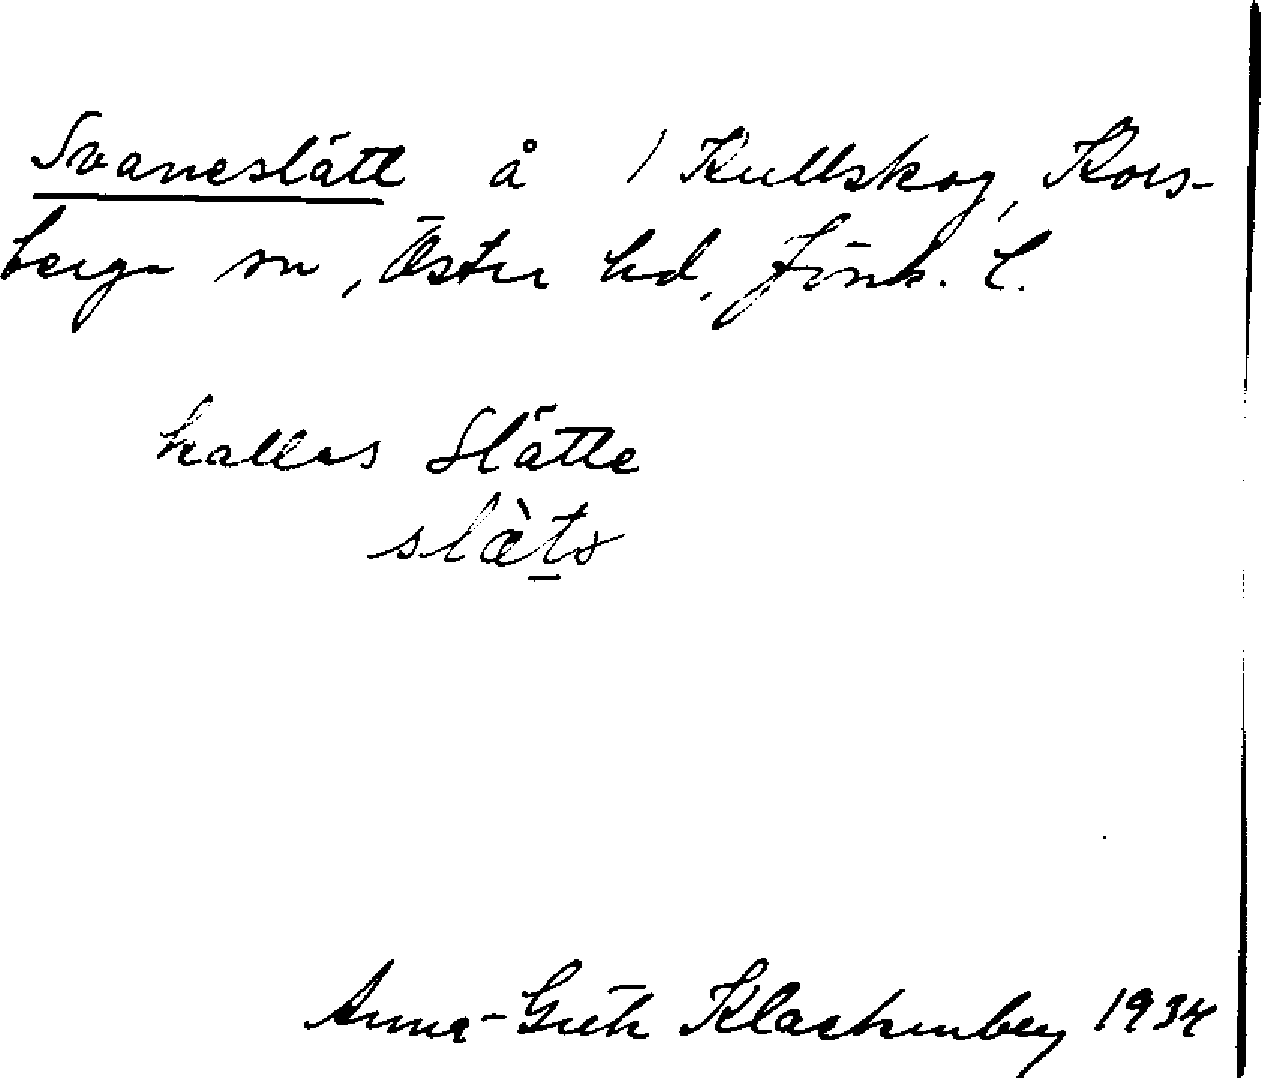 Svaneslätt å 1 Kullskog, Kors-
berga sn, Östra hd, Jönk. l.
kallas Slätte
slæ̀tə
Anna-Greta Klackenberg 1934